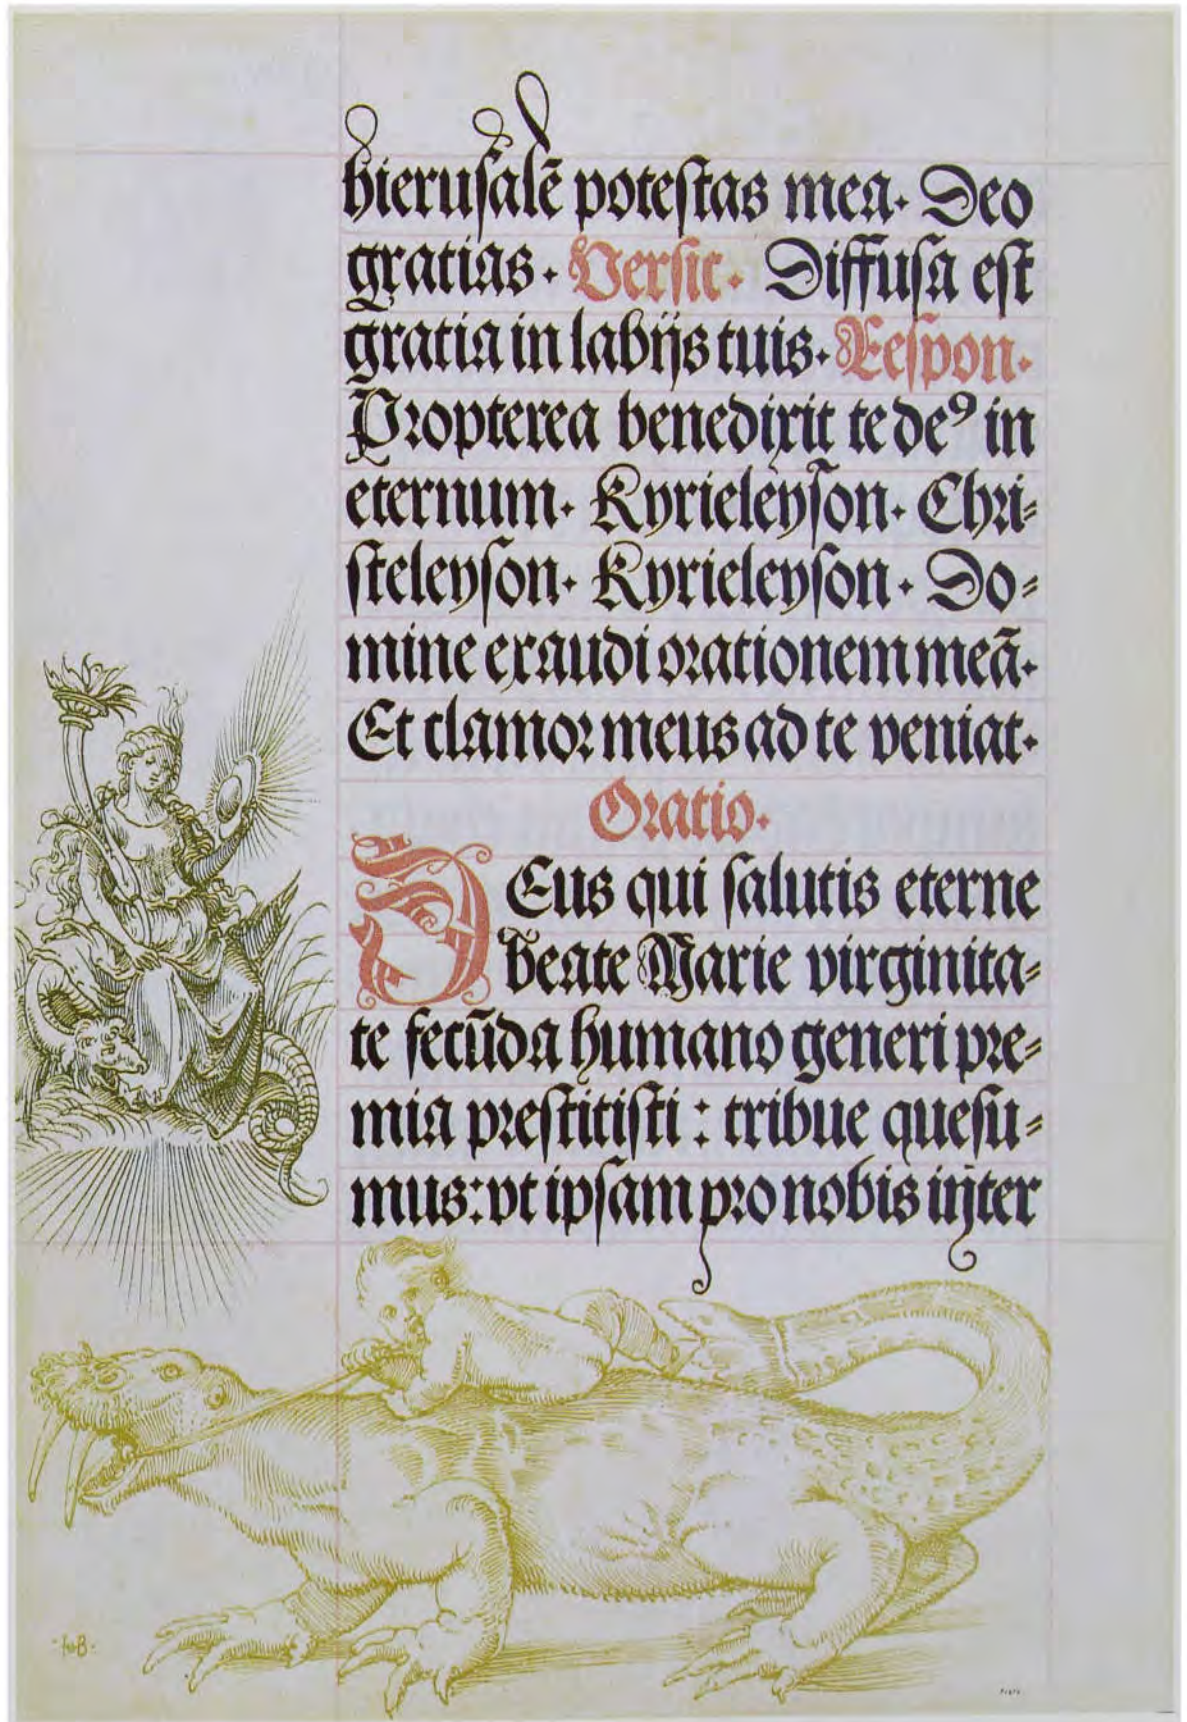 hieruſalē poteſtas mea. Deo
gratias. Verſic. Diffuſa eſt
gratia in labijs tuis. Reſpon.
Propterea benedixit te deꝰ in
eternum. Kyrieleyſon. Chri-
ſteleyſon. Kyrieleyſon. Do-
mine exaudi orationem meā.
Et clamor meus ad te veniat.
Oratio.
DEus qui ſalutis eterne
beate Marie virginita-
te fecūda humano generi pre-
mia preſtitiſti : tribue queſu-
mus: vt ipſam pro nobis inter
HB